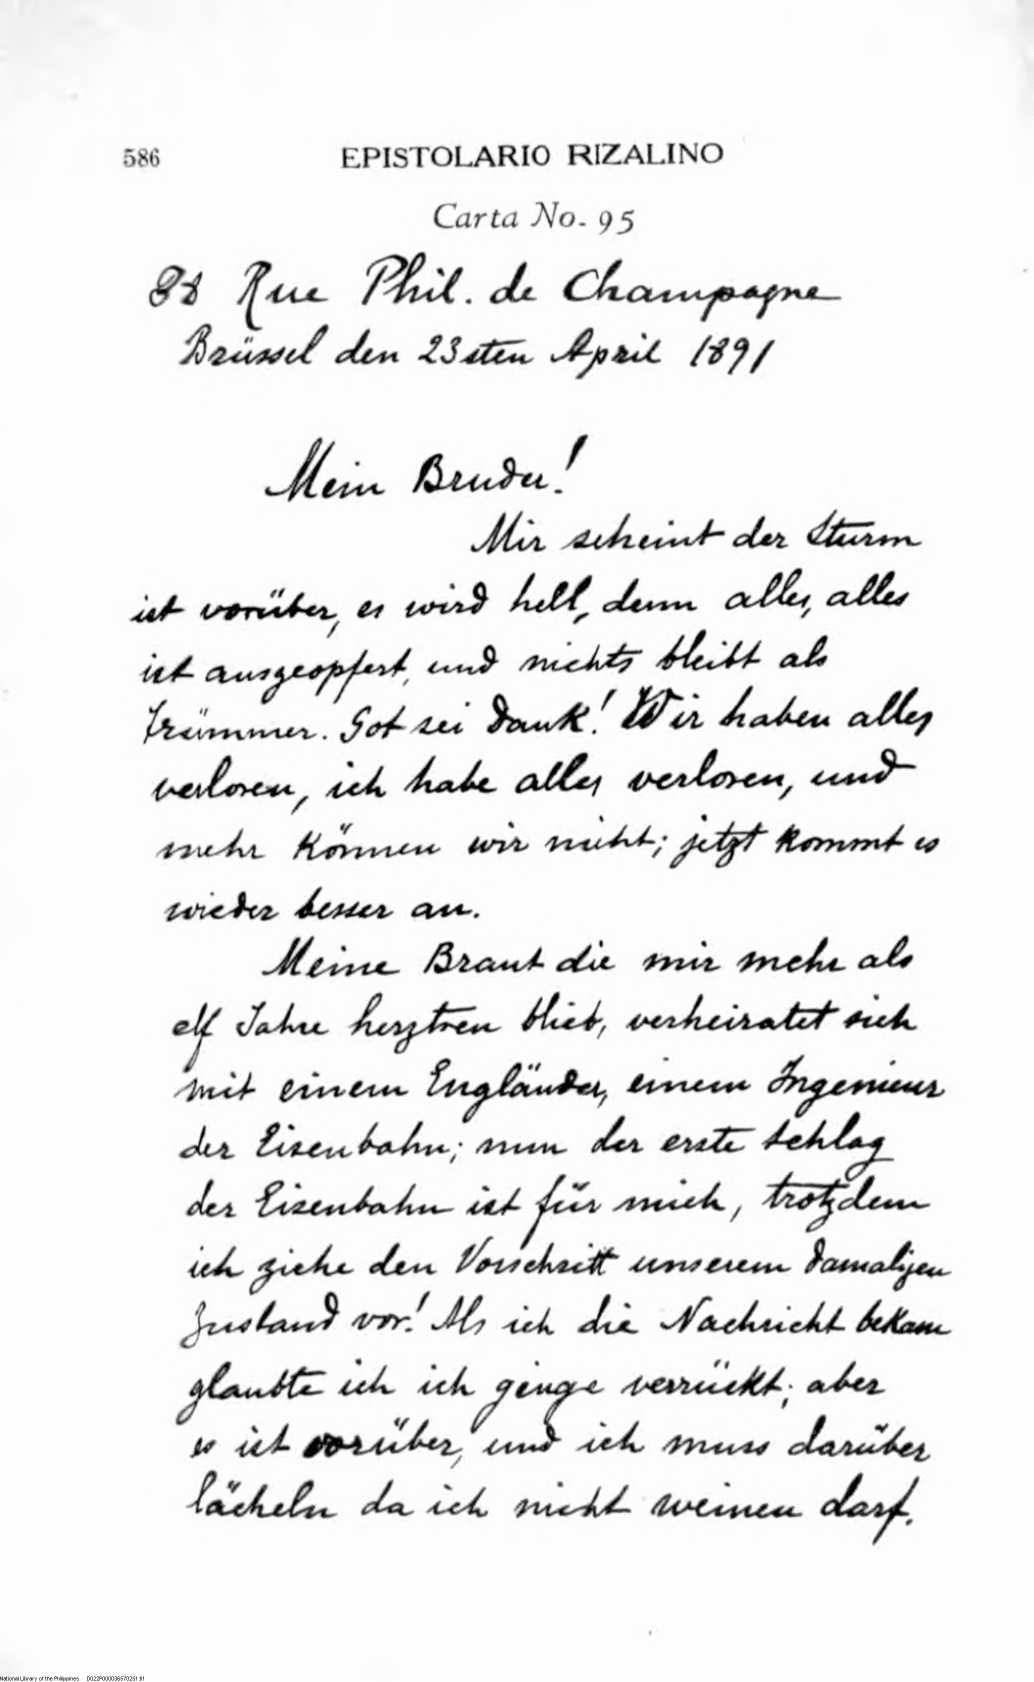 586
EPISTOLARIO RIZALINO
Carta No. 95
38 Rue Phil. de Champagne
Brüssel den 23sten April 1891
Mein Bruder!
Mir scheint der Sturm
ist vorüber, es wird hell, denn alles, alles
ist ausgeopfert, und nichts bleibt als
Trümmer. Got sei Dank! Wir haben alles
verloren, ich habe alles verloren, und
mehr können wir nicht; jetzt kommt es
wieder besser an.
Meine Braut die mir mehr als
elf Jahre herztreu blieb, verheiratet sich
mit einem Engländer, einem Ingenieur
der Eisenbahn; nun der erste Schlag
der Eisenbahn ist für mich, trotzdem
ich ziehe den Vorschritt unserem damaligen
Zustand vor! Als ich die Nachricht bekam
glaubte ich ich genge verrückt; aber
es ist vorüber, und ich muss darüber
lächeln da ich nicht weinen darf.
National Library of the Philippines